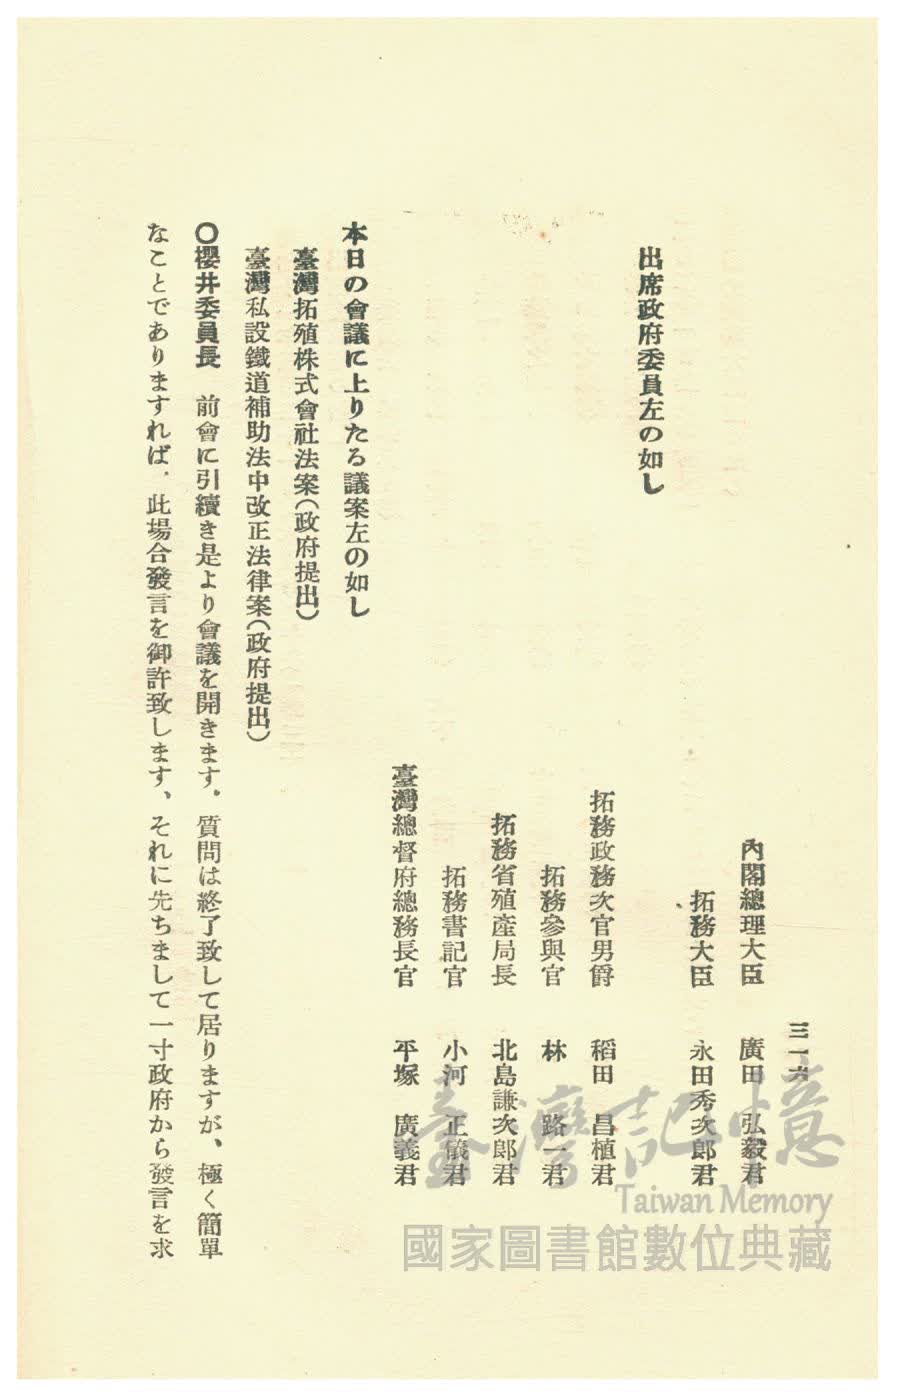 三一六
內閣總理大臣 廣田 弘毅君
拓務大臣 永田秀次郎君
出席政府委員左の如し
拓務政務次官男爵 稻田 昌植君
拓務參與官 林 路一君
拓務省殖產局長 北島謙次郎君
拓務書記官 小河 正儀君
臺灣總督府總務長官 平塚 廣義君
本日の會議に上りたる議案左の如し
臺灣拓殖株式會社法案(政府提出)
臺灣私設鐵道補助法中改正法律案(政府提出)
〇櫻井委員長 前會に引續き是より會議を開きます。質問は終了致して居りますが、極く簡單
なことでありますれば、此場合發言を御許致します、それに先ちまして一寸政府から發言を求
臺灣記憶
Taiwan Memory
國家圖書館數位典藏